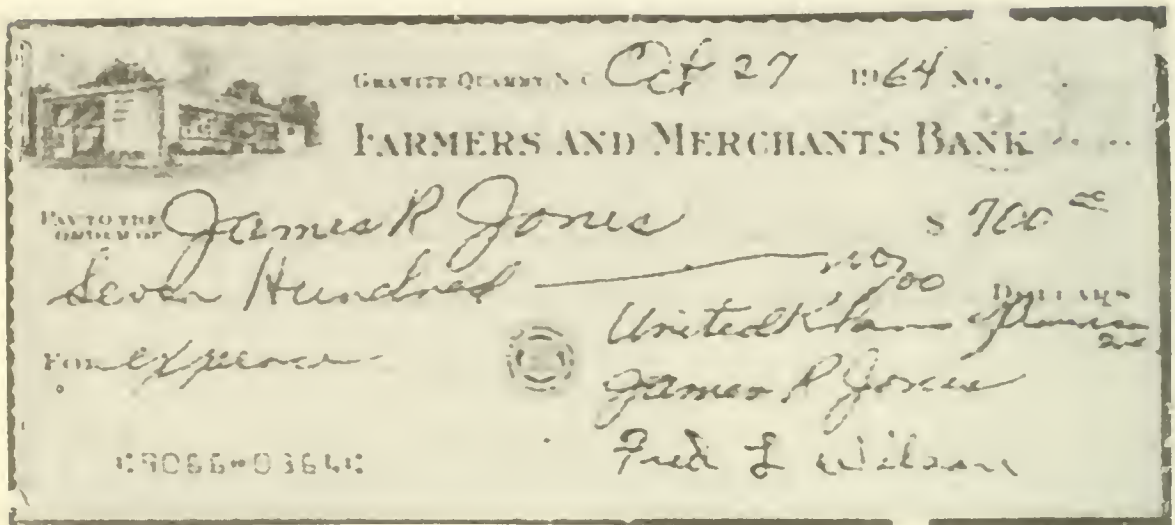 GRANITE QUARRY, N. C. Oct 27 1964 No.
FARMERS AND MERCHANTS BANK
PAY TO THE ORDER OF James R Jones $ 700 00
Seven Hundred no/00 DOLLARS
United Klans of America Inc
FOR expence
James R Jones
Fred L Wilson